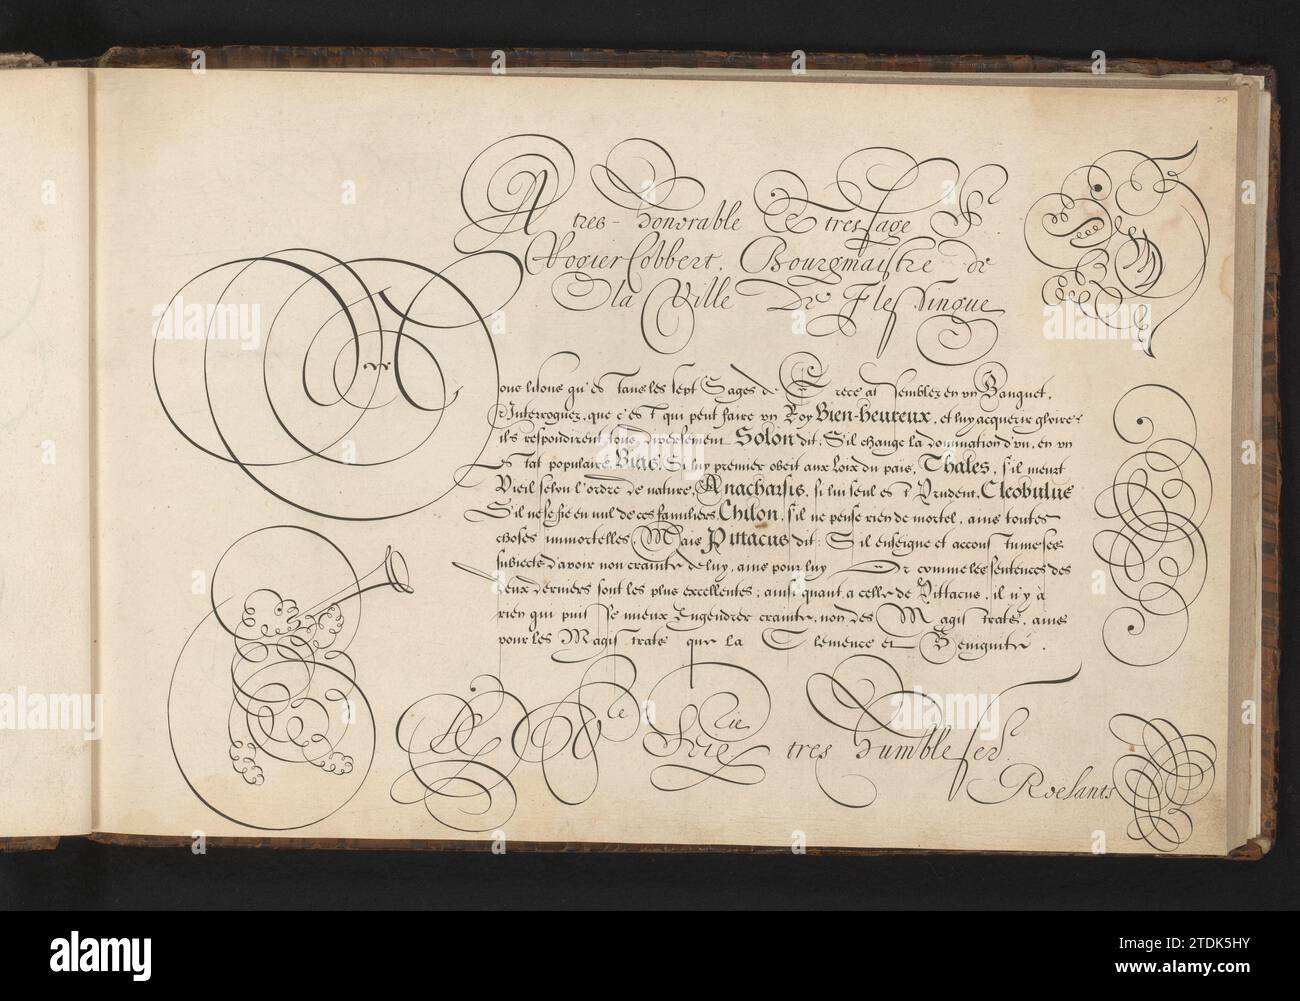 20
A tres-honorable & tressage Sr
Rogier Cobbert, Bourgmaistre de
la Ville De Flessingue
Nous lisons qu'es tans les sept Sages de Grece assemblez en un Banquet,
Interroguez, que c'est qui peut faire un Roy Bien-heureux, et luy acquerir gloire:
ils respondirent tous diversement Solon dit: S'il change la domination d'un, en un
estat populaire. Bias, Si luy premier obeit aux loix du pais, Thales, s'il meurt
Vieil selon l'ordre de nature, Anacharsis, si lui seul est Prudent, Cleobulus
S'il ne se fie en nul de ces familiers, Chilon, s'il ne pense rien de mortel, ains toutes
choses immortelles Mais Pittacus dit: S'il enseigne et accoustume ses
subiects d'avoir non crainte de luy, ains pour luy Or comme les sentences des
deux derniers sont les plus excellentes; ainsi quant a celle de Pittacus, il n'y à
rien qui puist se mieux Engendrer crainte, non des Magistrats, ains
pour les Magistrats que la Clemence et Benignité.
tres humble ser.
Roelants
alamy
Image ID: 2TDK5HY
www.alamy.com